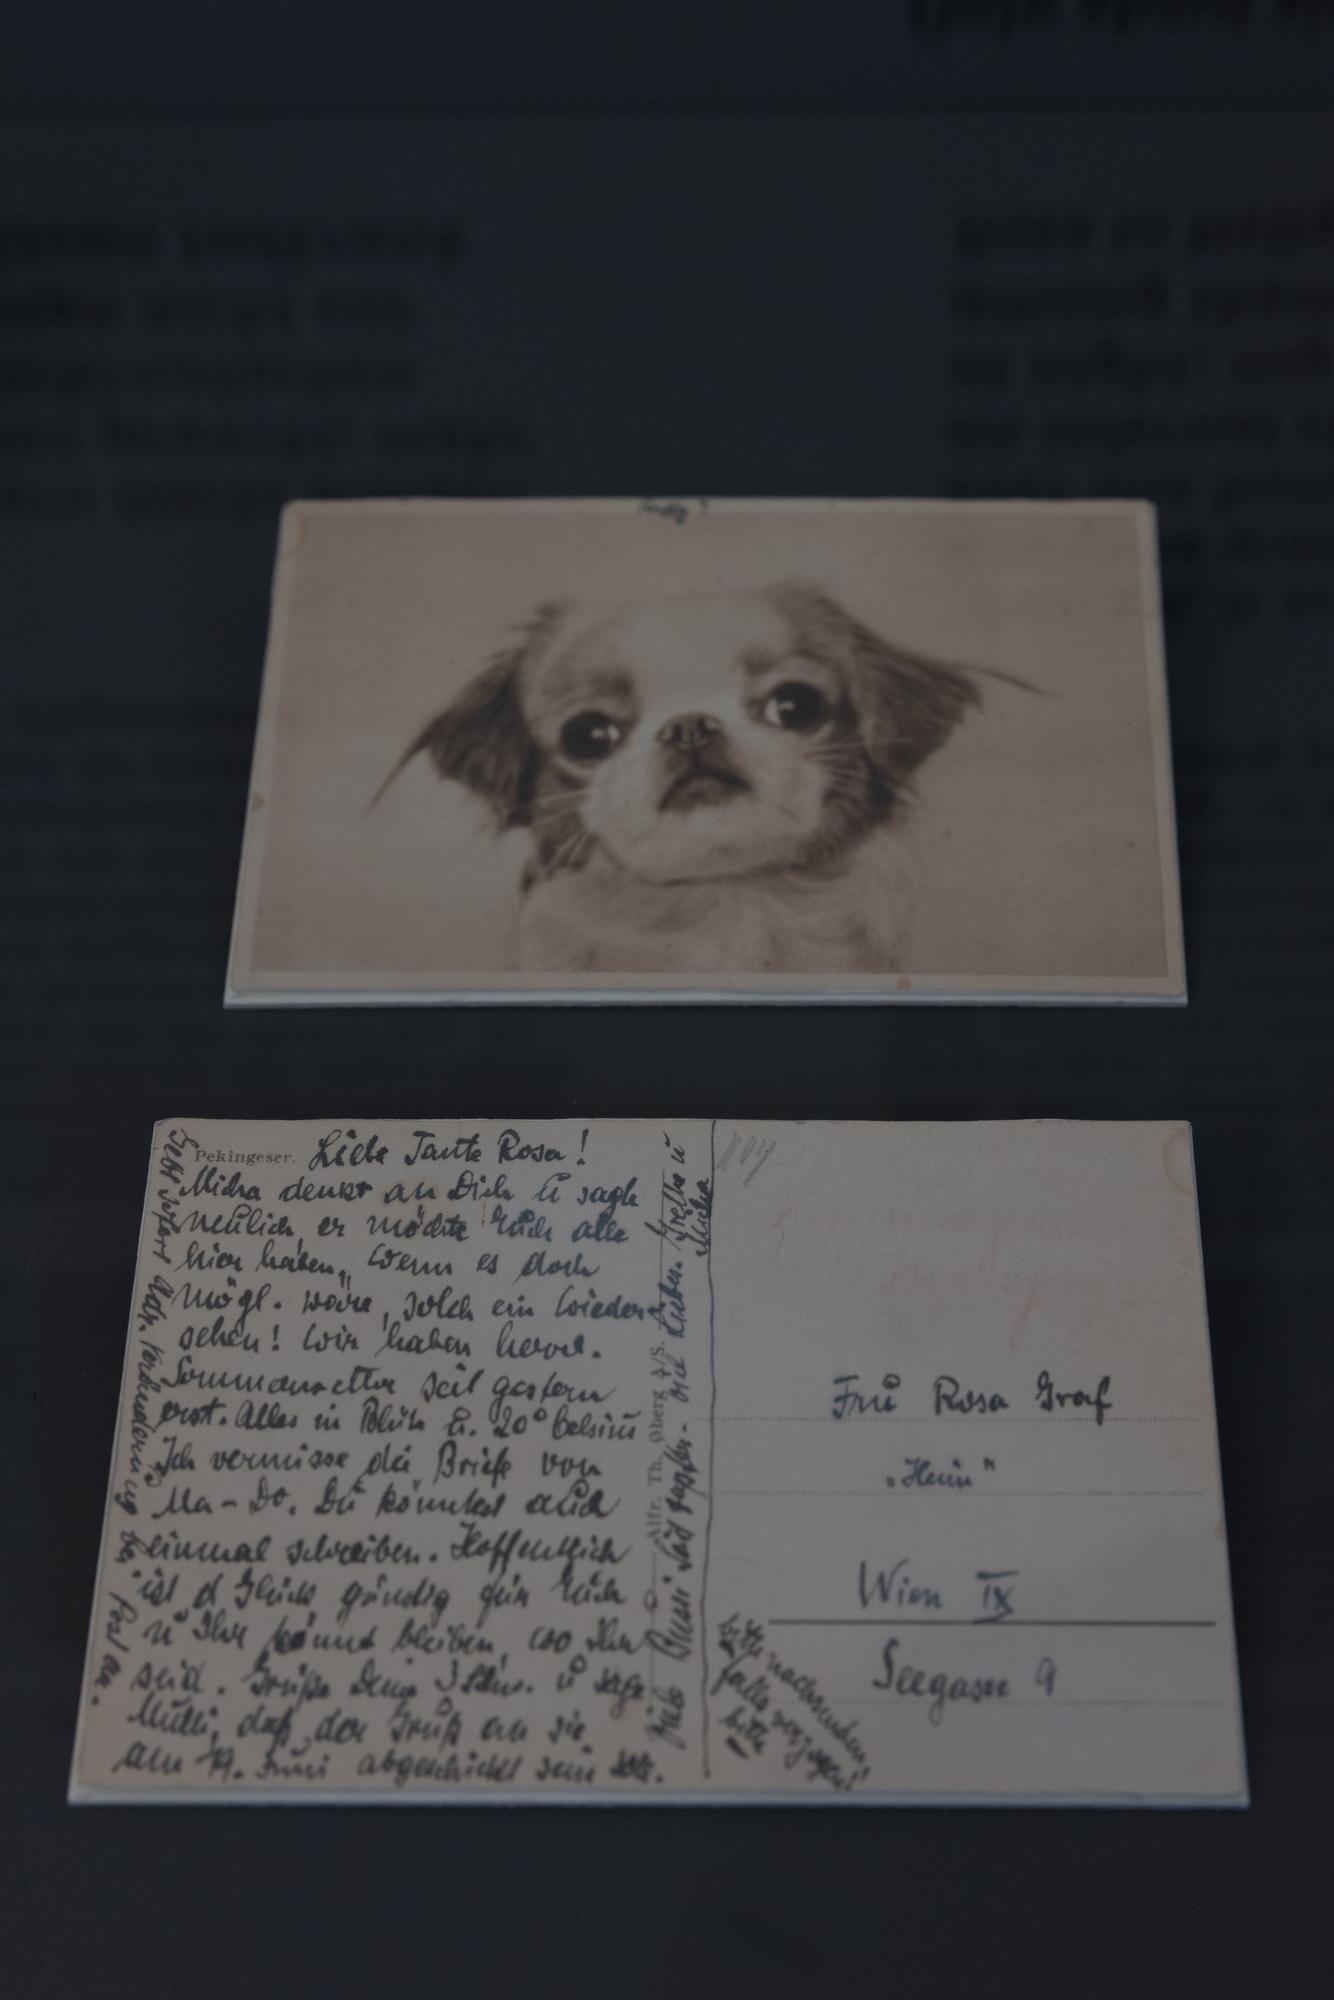 Pekingeser.
Liebe Tante Rosa!
Micha denkt an Dich u sagte
neulich er möchte Euch alle
hier haben. Wenn es doch
mögl. wäre, solch ein Wieder-
sehen! Wir haben herrl.
Sommerwetter seit gestern
erst. Alles in Blüte u. 20° Celsius
Ich vermisse die Briefe von
Ma-Do. Du könntest auch
einmal schreiben. Hoffentlich
ist d Glück günstig für Euch
u Ihr könnt bleiben, wo Ihr
seid. Grüße Deine u sage
Mutti, daß der Gruß an sie
am 19. Juni abgeschickt sein
Gebt sofort Adr. Veränderung bei Post an.
Viele Bussi
Grethe u
Micha
Alfr. Th. Øberg A/S.
Frau Rosa Graf
„Heim"
Wien IX
Seegasse 9
bitte nachsenden!
falls verzogen!
bitte